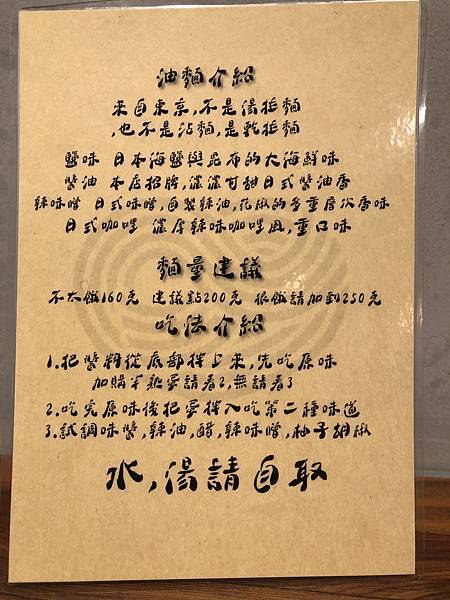 油麵介紹
來自東京,不是湯拉麵
,也不是沾麵,是乾拉麵
鹽味 日本海鹽與昆布的大海鮮味
醬油 本店招牌,濃濃甘甜日式醬油香
辣味噌 日式味噌,自製辣油,花椒的多重層次香味
日式咖哩 濃厚辣味咖哩風,重口味
麵量建議
不太餓160克 建議點200克 很餓請加到250克
吃法介紹
1.把醬料從底部拌上來,先吃原味
加購半熟蛋請看2,無請看3
2.吃完原味後把蛋拌入吃第二種味道
3.試調味醬,辣油,醋,辣味噌,柚子胡椒
水,湯請自取